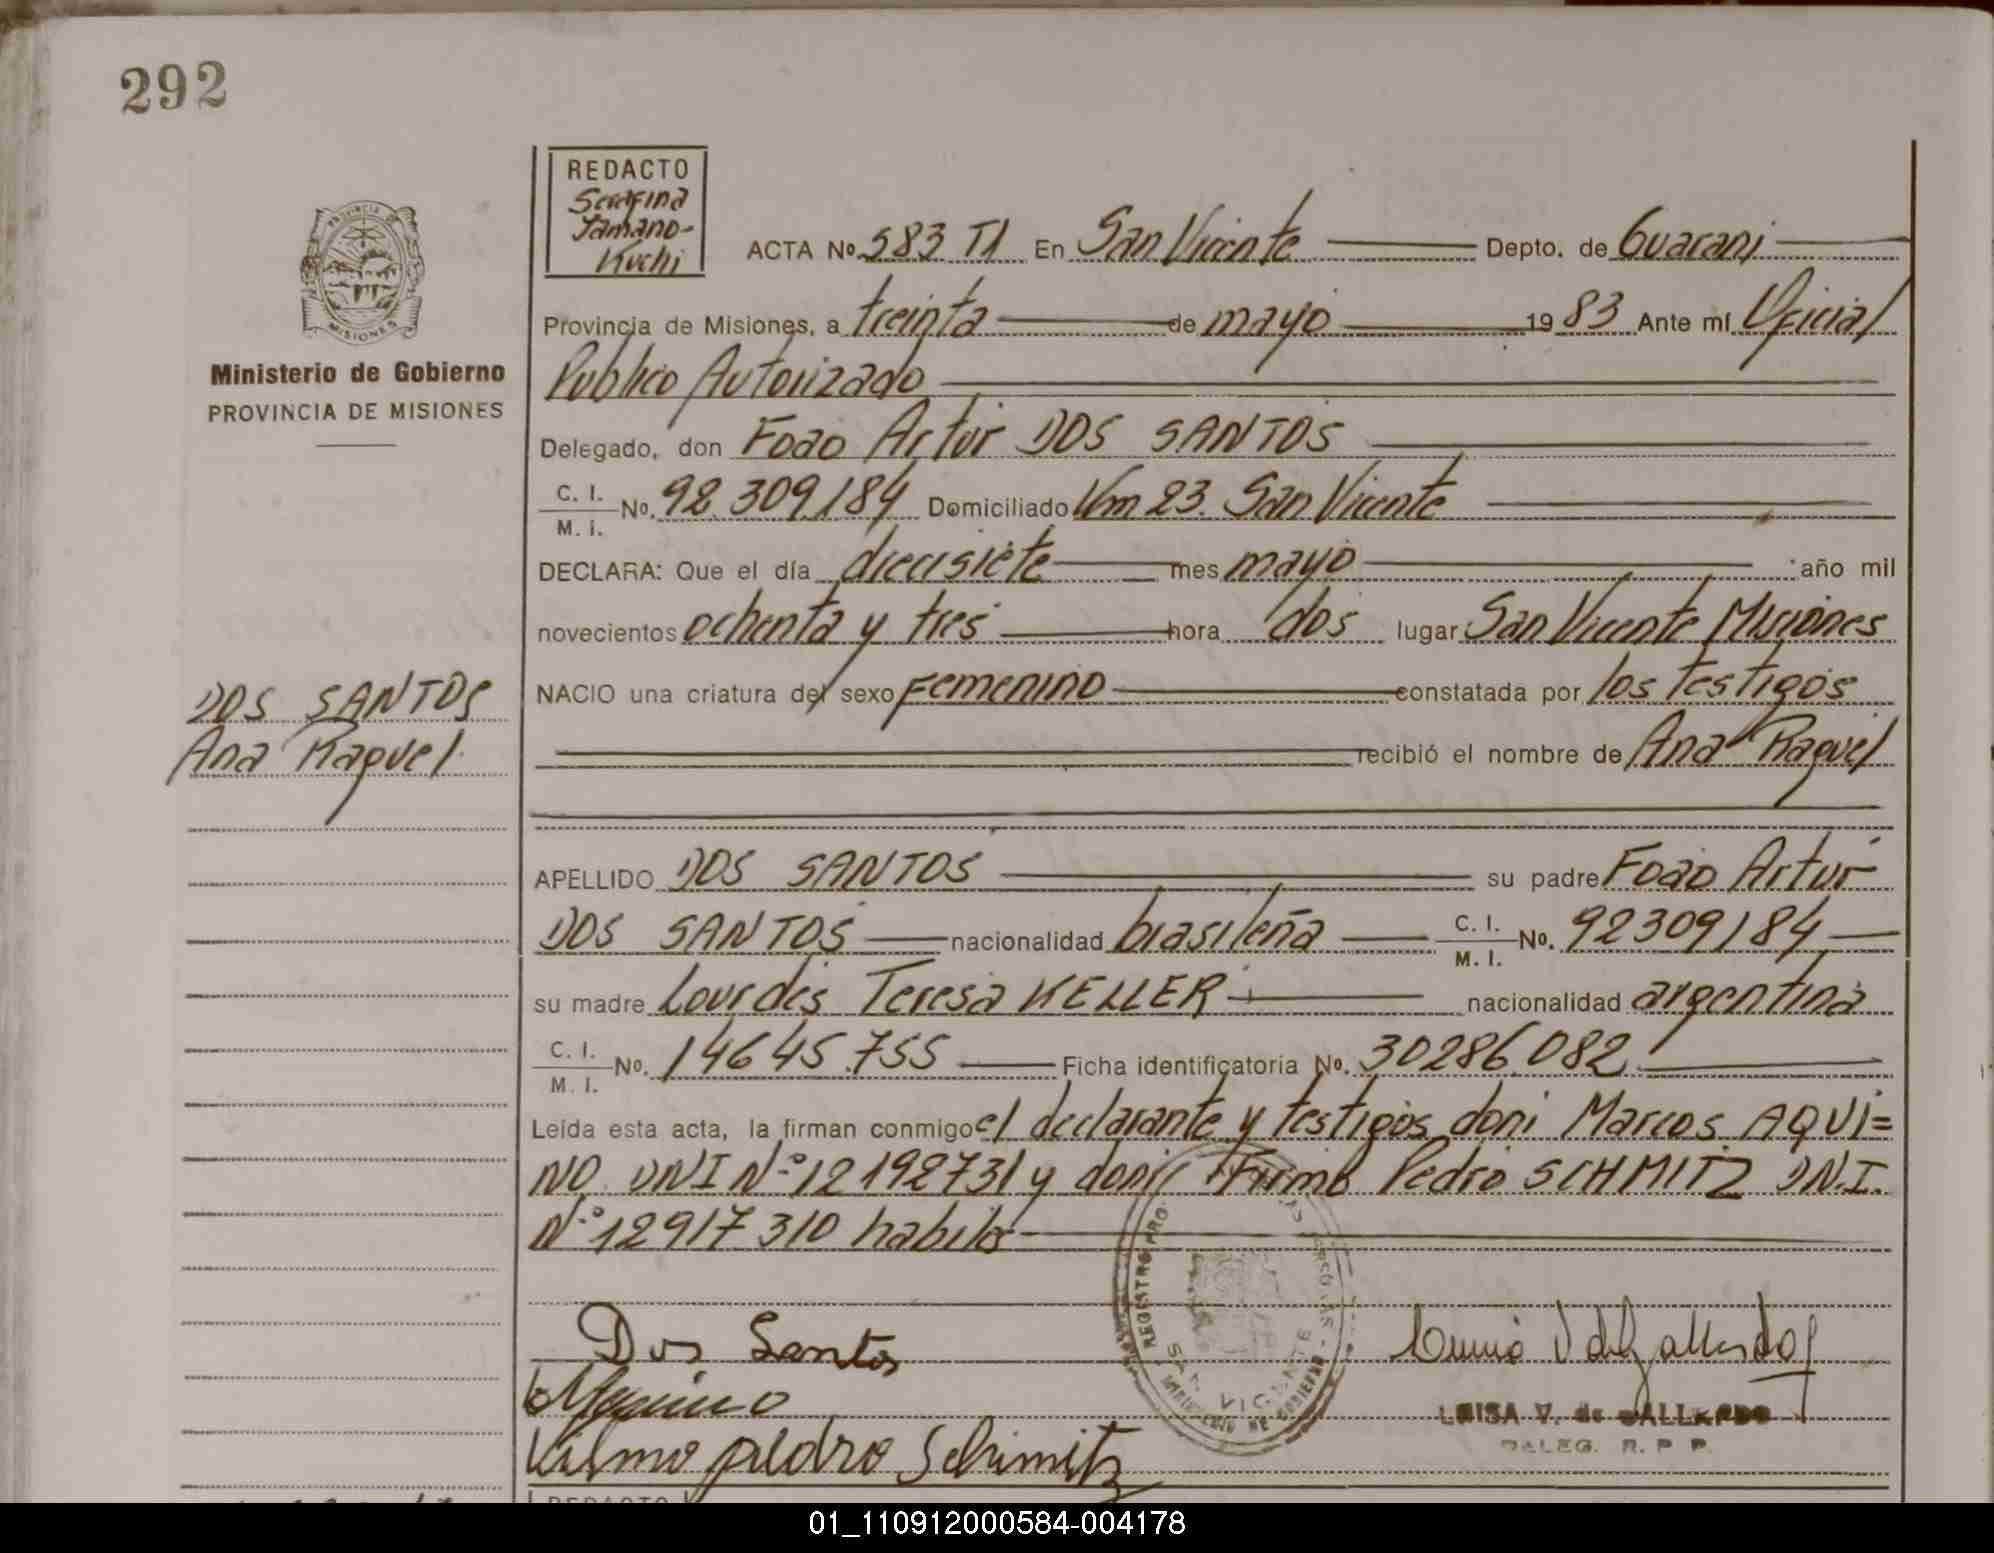 292
REDACTO
Serafina
Tamano-
Kuchi
ACTA No. 583 T1 En San Vicente Depto. de Guarani
PROVINCIA DE
MISIONES
Provincia de Misiones, a treinta de mayo 1983 Ante mí Oficial
Ministerio de Gobierno
PROVINCIA DE MISIONES
Publico Autorizado
Delegado, don Foao Artur DOS SANTOS
C. I.
M. I. No. 92.309.184 Domiciliado Km 23. San Vicente
DECLARA: Que el día diecisiete mes mayo año mil
novecientos ochenta y tres hora dos lugar San Vicente Misiones
DOS SANTOS
Ana Raquel
NACIO una criatura del sexo Femenino constatada por los testigos
recibió el nombre de Ana Raquel
APELLIDO DOS SANTOS su padre Foao Artur
DOS SANTOS nacionalidad brasileña C. I.
M. I. No. 92309184
su madre Lourdes Teresa KELLER nacionalidad argentina
C. I.
M. I. No. 14645.755 Ficha identificatoria No. 30286.082
Leída esta acta, la firman conmigo el declarante y testigos don: Marcos AQUI=
NO DNI Nº 12192731 y don: Pedro SCHMITZ D.N.I.
Nº 12917310 habiles
REGISTRO PRO
SAN VICENTE
Dos Santos
LUISA V. de GALLARDO
DALEG. R. P. P.
pedro Schmitz
REDACTO
01_110912000584-004178